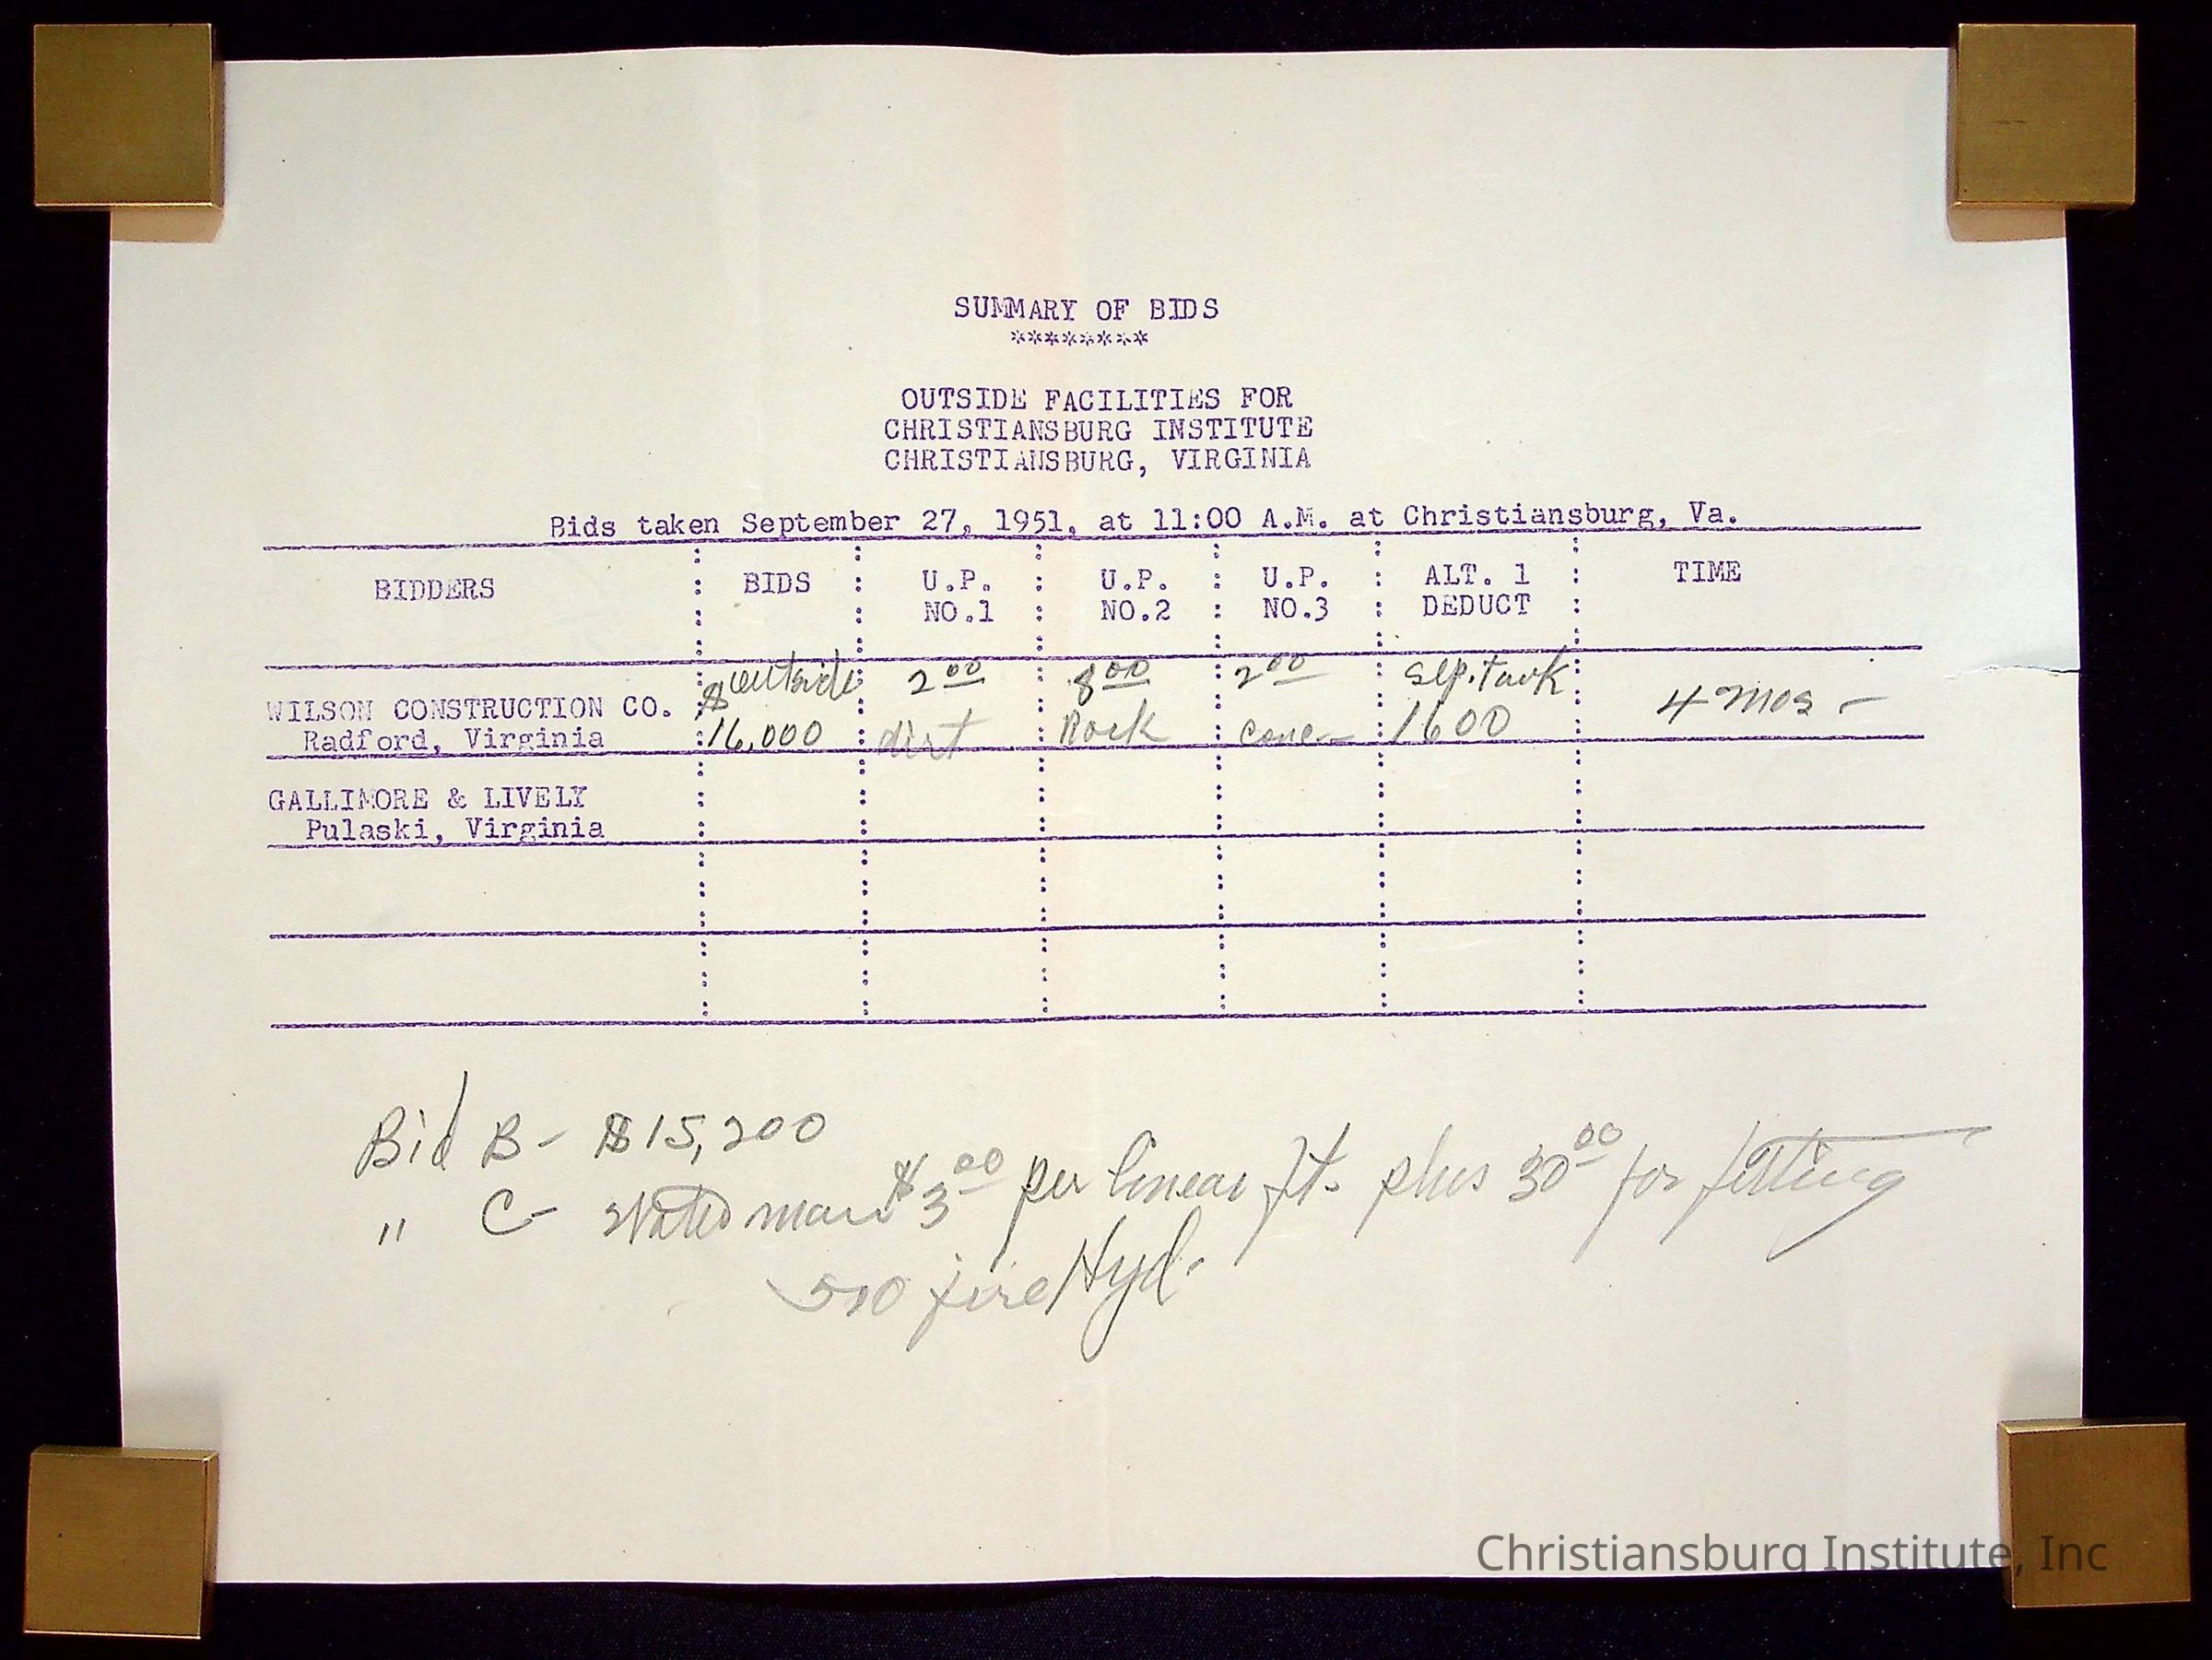 SUMMARY OF BIDS
********
OUTSIDE FACILITIES FOR
CHRISTIANSBURG INSTITUTE
CHRISTIANSBURG, VIRGINIA
Bids taken September 27, 1951, at 11:00 A.M. at Christiansburg, Va.
BIDDERS : BIDS : U.P. : U.P. : U.P. : ALT. 1 : TIME
NO.1 : NO.2 : NO.3 : DEDUCT :
$ outside 2 00 8 00 2 00 Sep. Tank
WILSON CONSTRUCTION CO. 4 mos -
Radford, Virginia 16,000 dirt Rock conc- 1600
GALLIMORE & LIVELY
Pulaski, Virginia
Bid B - $15,200
" C - main $3 00 per linear ft. plus 30 00 for fitting
fire Hyd.
Christiansburg Institute, Inc